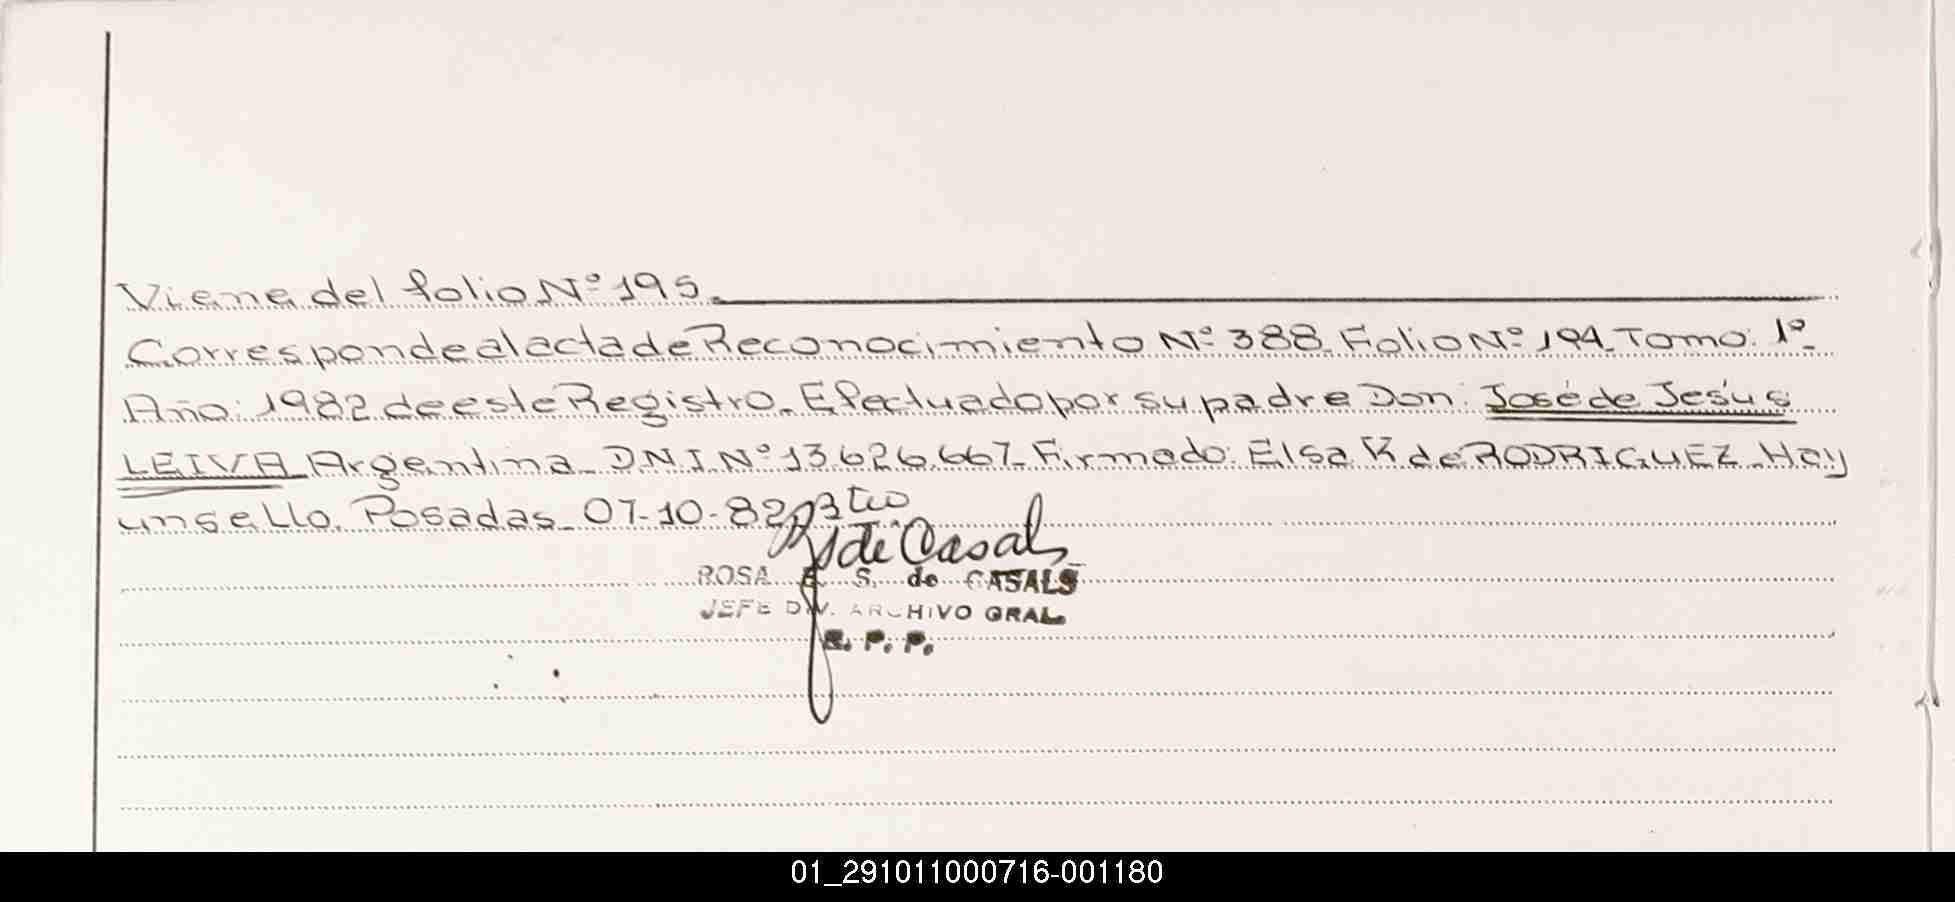 Viene del folio Nº 195.
Corresponde al acta de Reconocimiento Nº 388. Folio Nº 194. Tomo: 1º
Año: 1982 de este Registro. Efectuado por su padre Don: José de Jesús
LEIVA Argentina. D.N.I. Nº 13.626.667. Firmado: Elsa K de RODRIGUEZ. Hay
un sello. Posadas. 07-10-82
de Casals
ROSA E. S. de CASALS
JEFE DIV. ARCHIVO GRAL.
R. P. P.
01_291011000716-001180